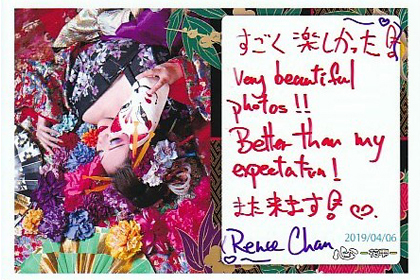 すごく楽しかった！
very beautiful
photos!!
Better than my
expectation!
また来ます！
2019/04/06
Renee Chan